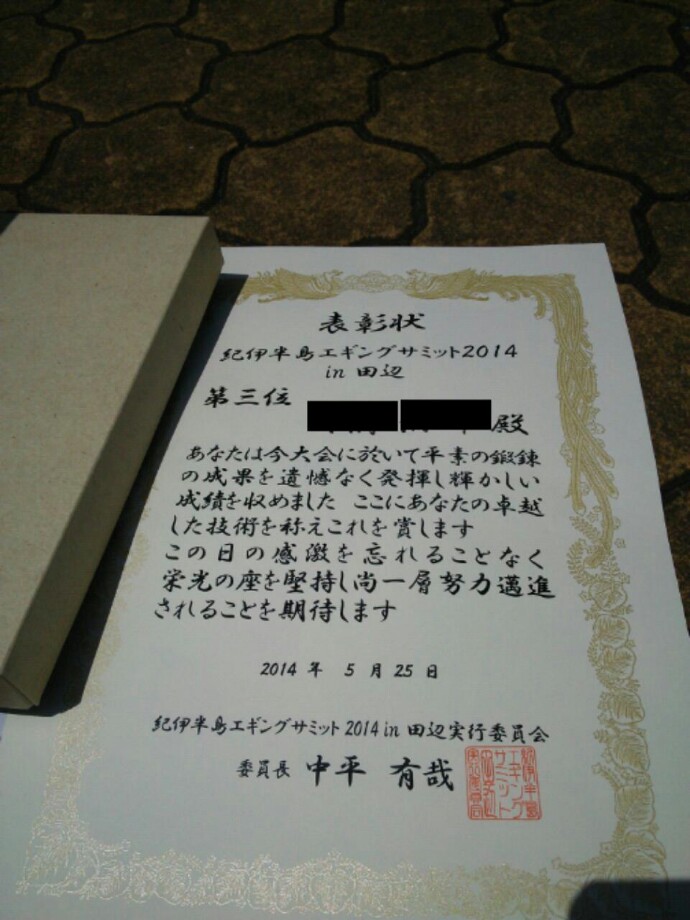 表彰状
紀伊半島エギングサミット2014
in 田辺
第三位
殿
あなたは今大会に於いて平素の鍛錬
の成果を遺憾なく発揮し輝かしい
成績を収めました ここにあなたの卓越
した技術を称えこれを賞します
この日の感激を忘れることなく
栄光の座を堅持し尚一層努力邁進
されることを期待します
2014 年 5 月 25 日
紀伊半島エギングサミット2014 in 田辺実行委員会
委員長 中平 有哉
紀伊半島
エギング
サミット